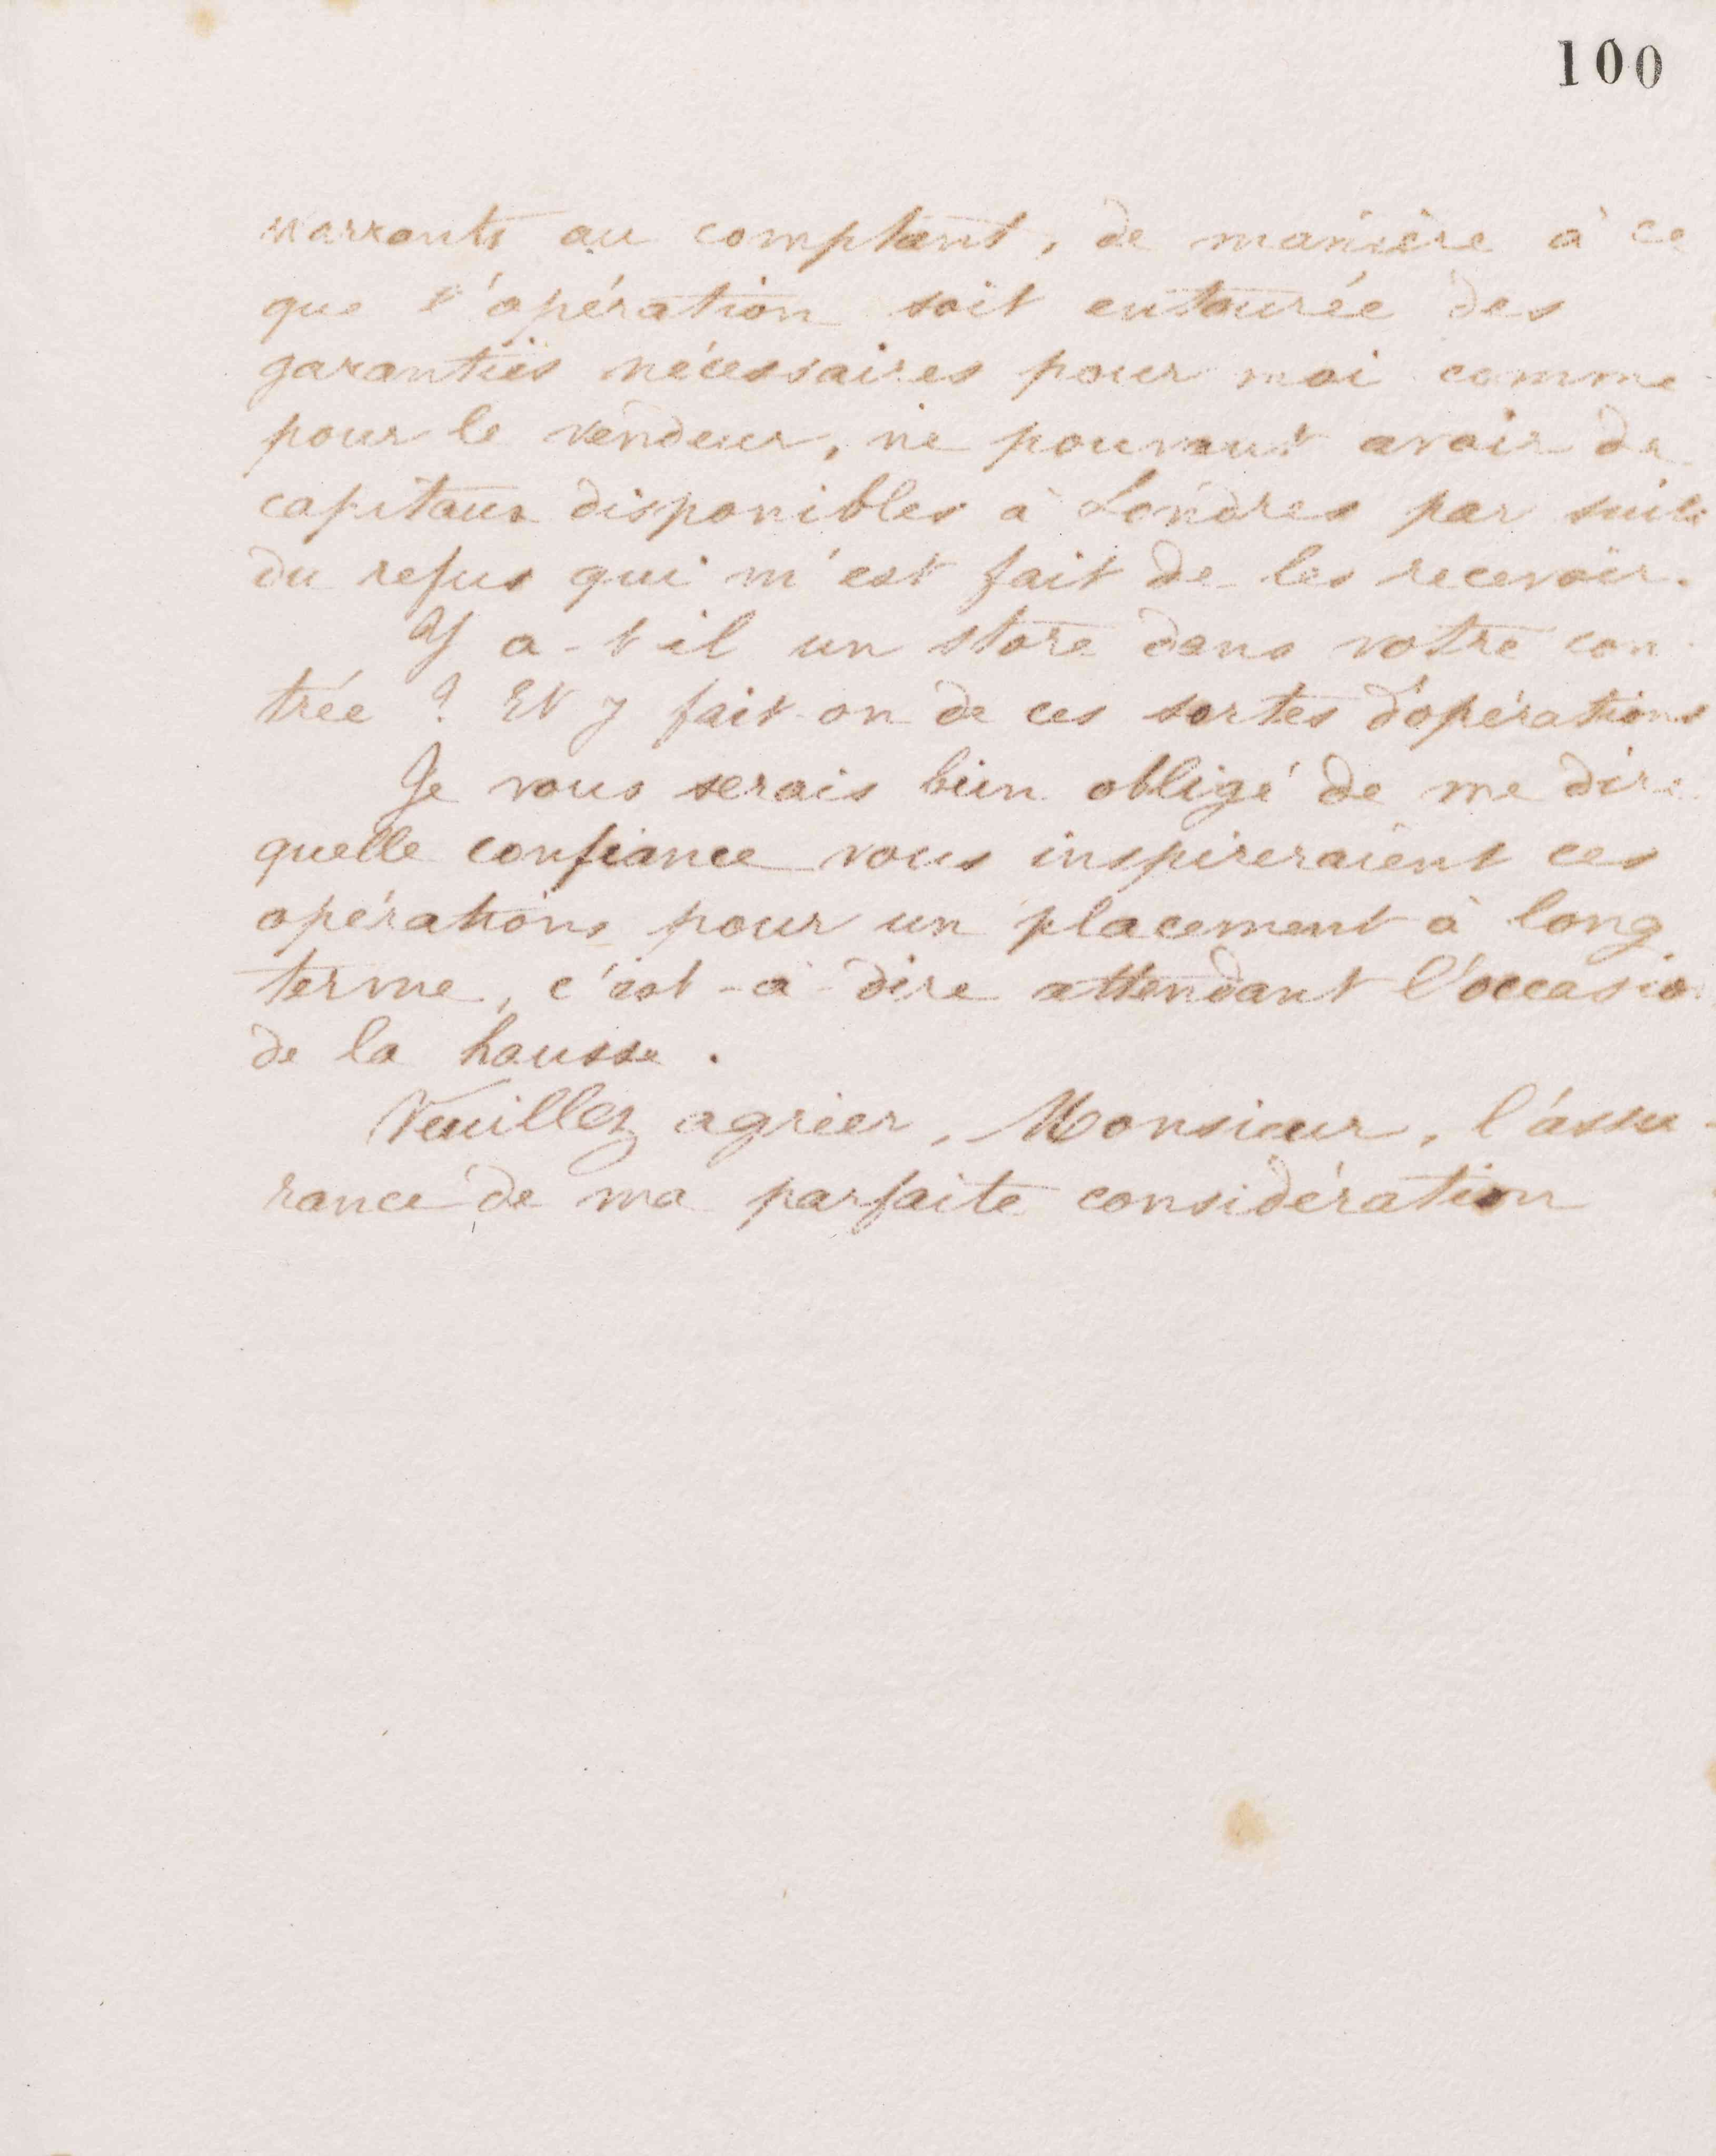 100
warrants au comptant, de manière à ce
que l'opération soit entourée des
garanties nécessaires pour moi comme
pour le vendeur, ne pouvant avoir de
capitaux disponibles à Londres par suite
du refus qui m'est fait de les recevoir.
Y a-t-il un store dans votre con-
trée ? Et y fait-on de ces sortes d'opérations
Je vous serais bien obligé de me dire
quelle confiance vous inspireraient ces
opérations pour un placement à long
terme, c'est-à-dire attendant l'occasio
de la hausse.
Veuillez agréer, Monsieur, l'assu-
rance de ma parfaite considération